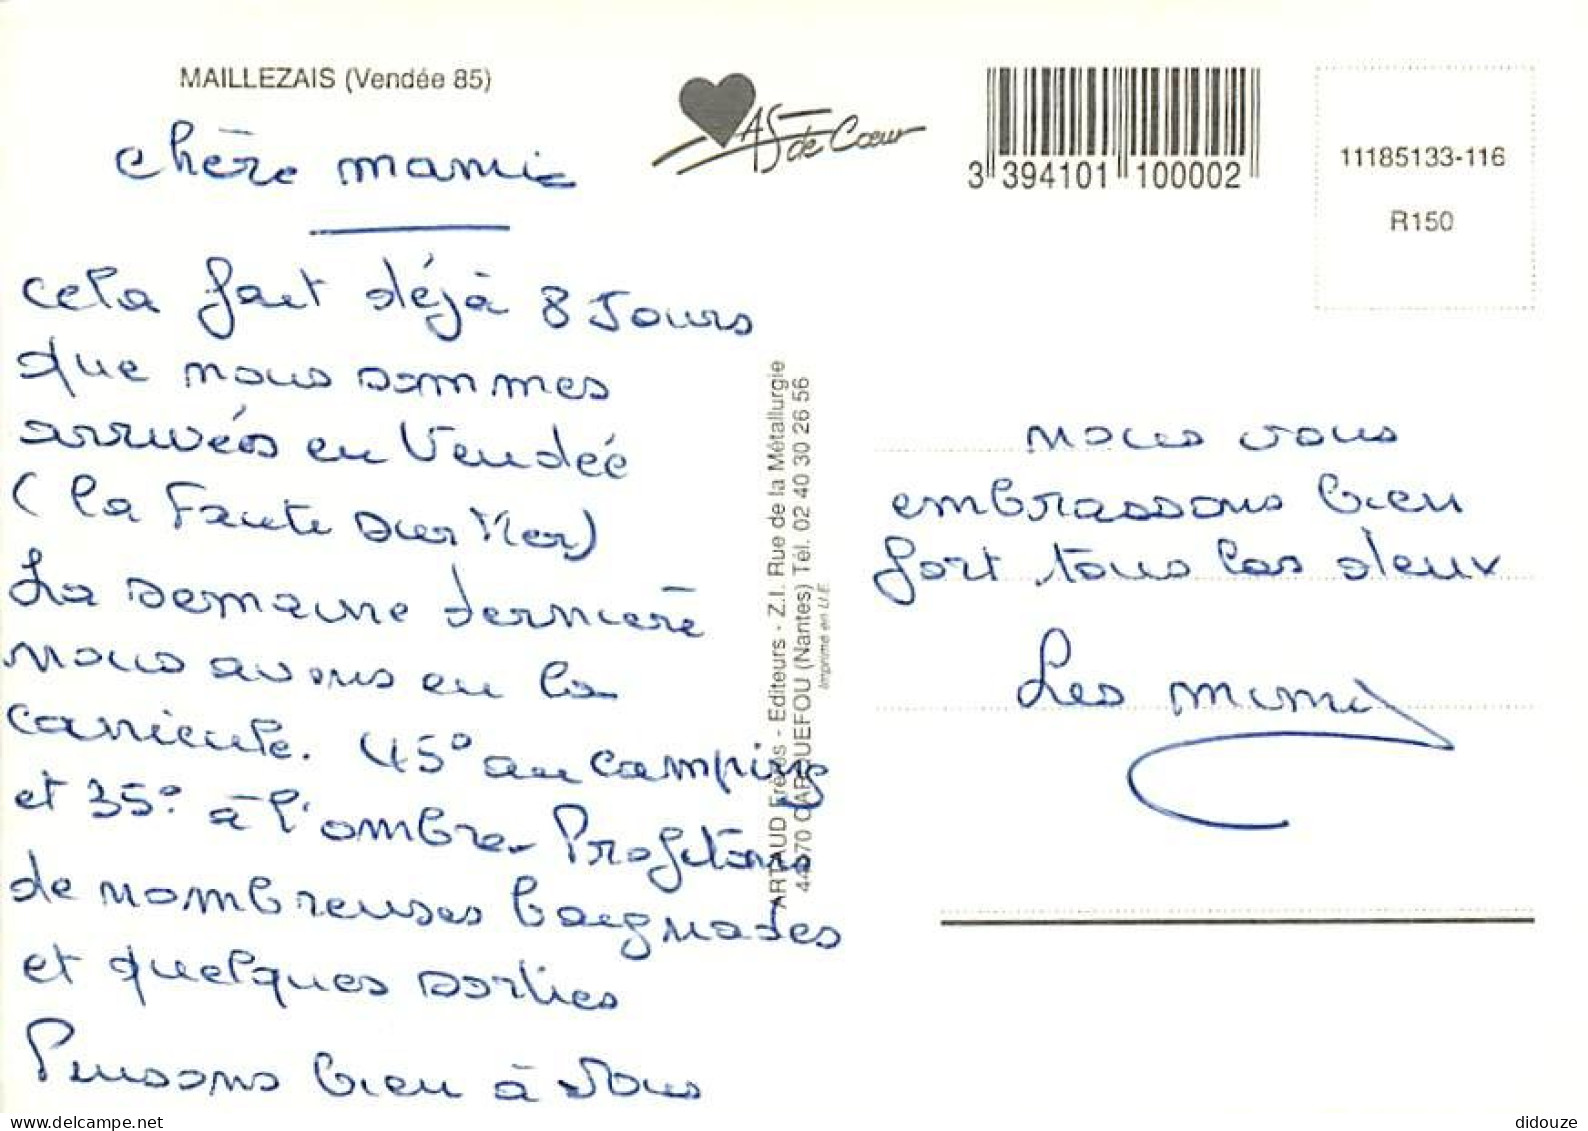 MAILLEZAIS (Vendée 85)
AS de Cœur
3 394101 100002
11185133-116
R150
chère mamie
cela fait déjà 8 Jours
que nous sommes
arrivés en Vendéé
(la Faute sur Mer)
La semaine dernière
nous avons eu la
canicule. 45° au camping
et 35° à l'ombre. Profitons
de nombreuses baignades
et quelques sorties
Pensons bien à vous
ARTAUD Frères - Editeurs - Z.I. Rue de la Métallurgie
44470 CARQUEFOU (Nantes) Tél. 02 40 30 26 56
Imprimé en U.E.
nous vous
embrassons bien
fort tous les deux
Les mimi
didouze